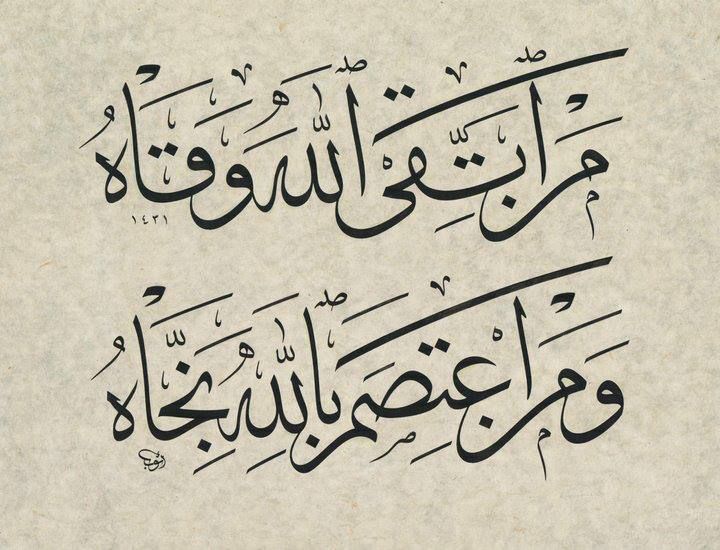 مَنِ اتَّقَى اللهَ وَقَاهُ
١٤٣١
وَمَنِ اعْتَصَمَ بِاللهِ نَجَّاهُ